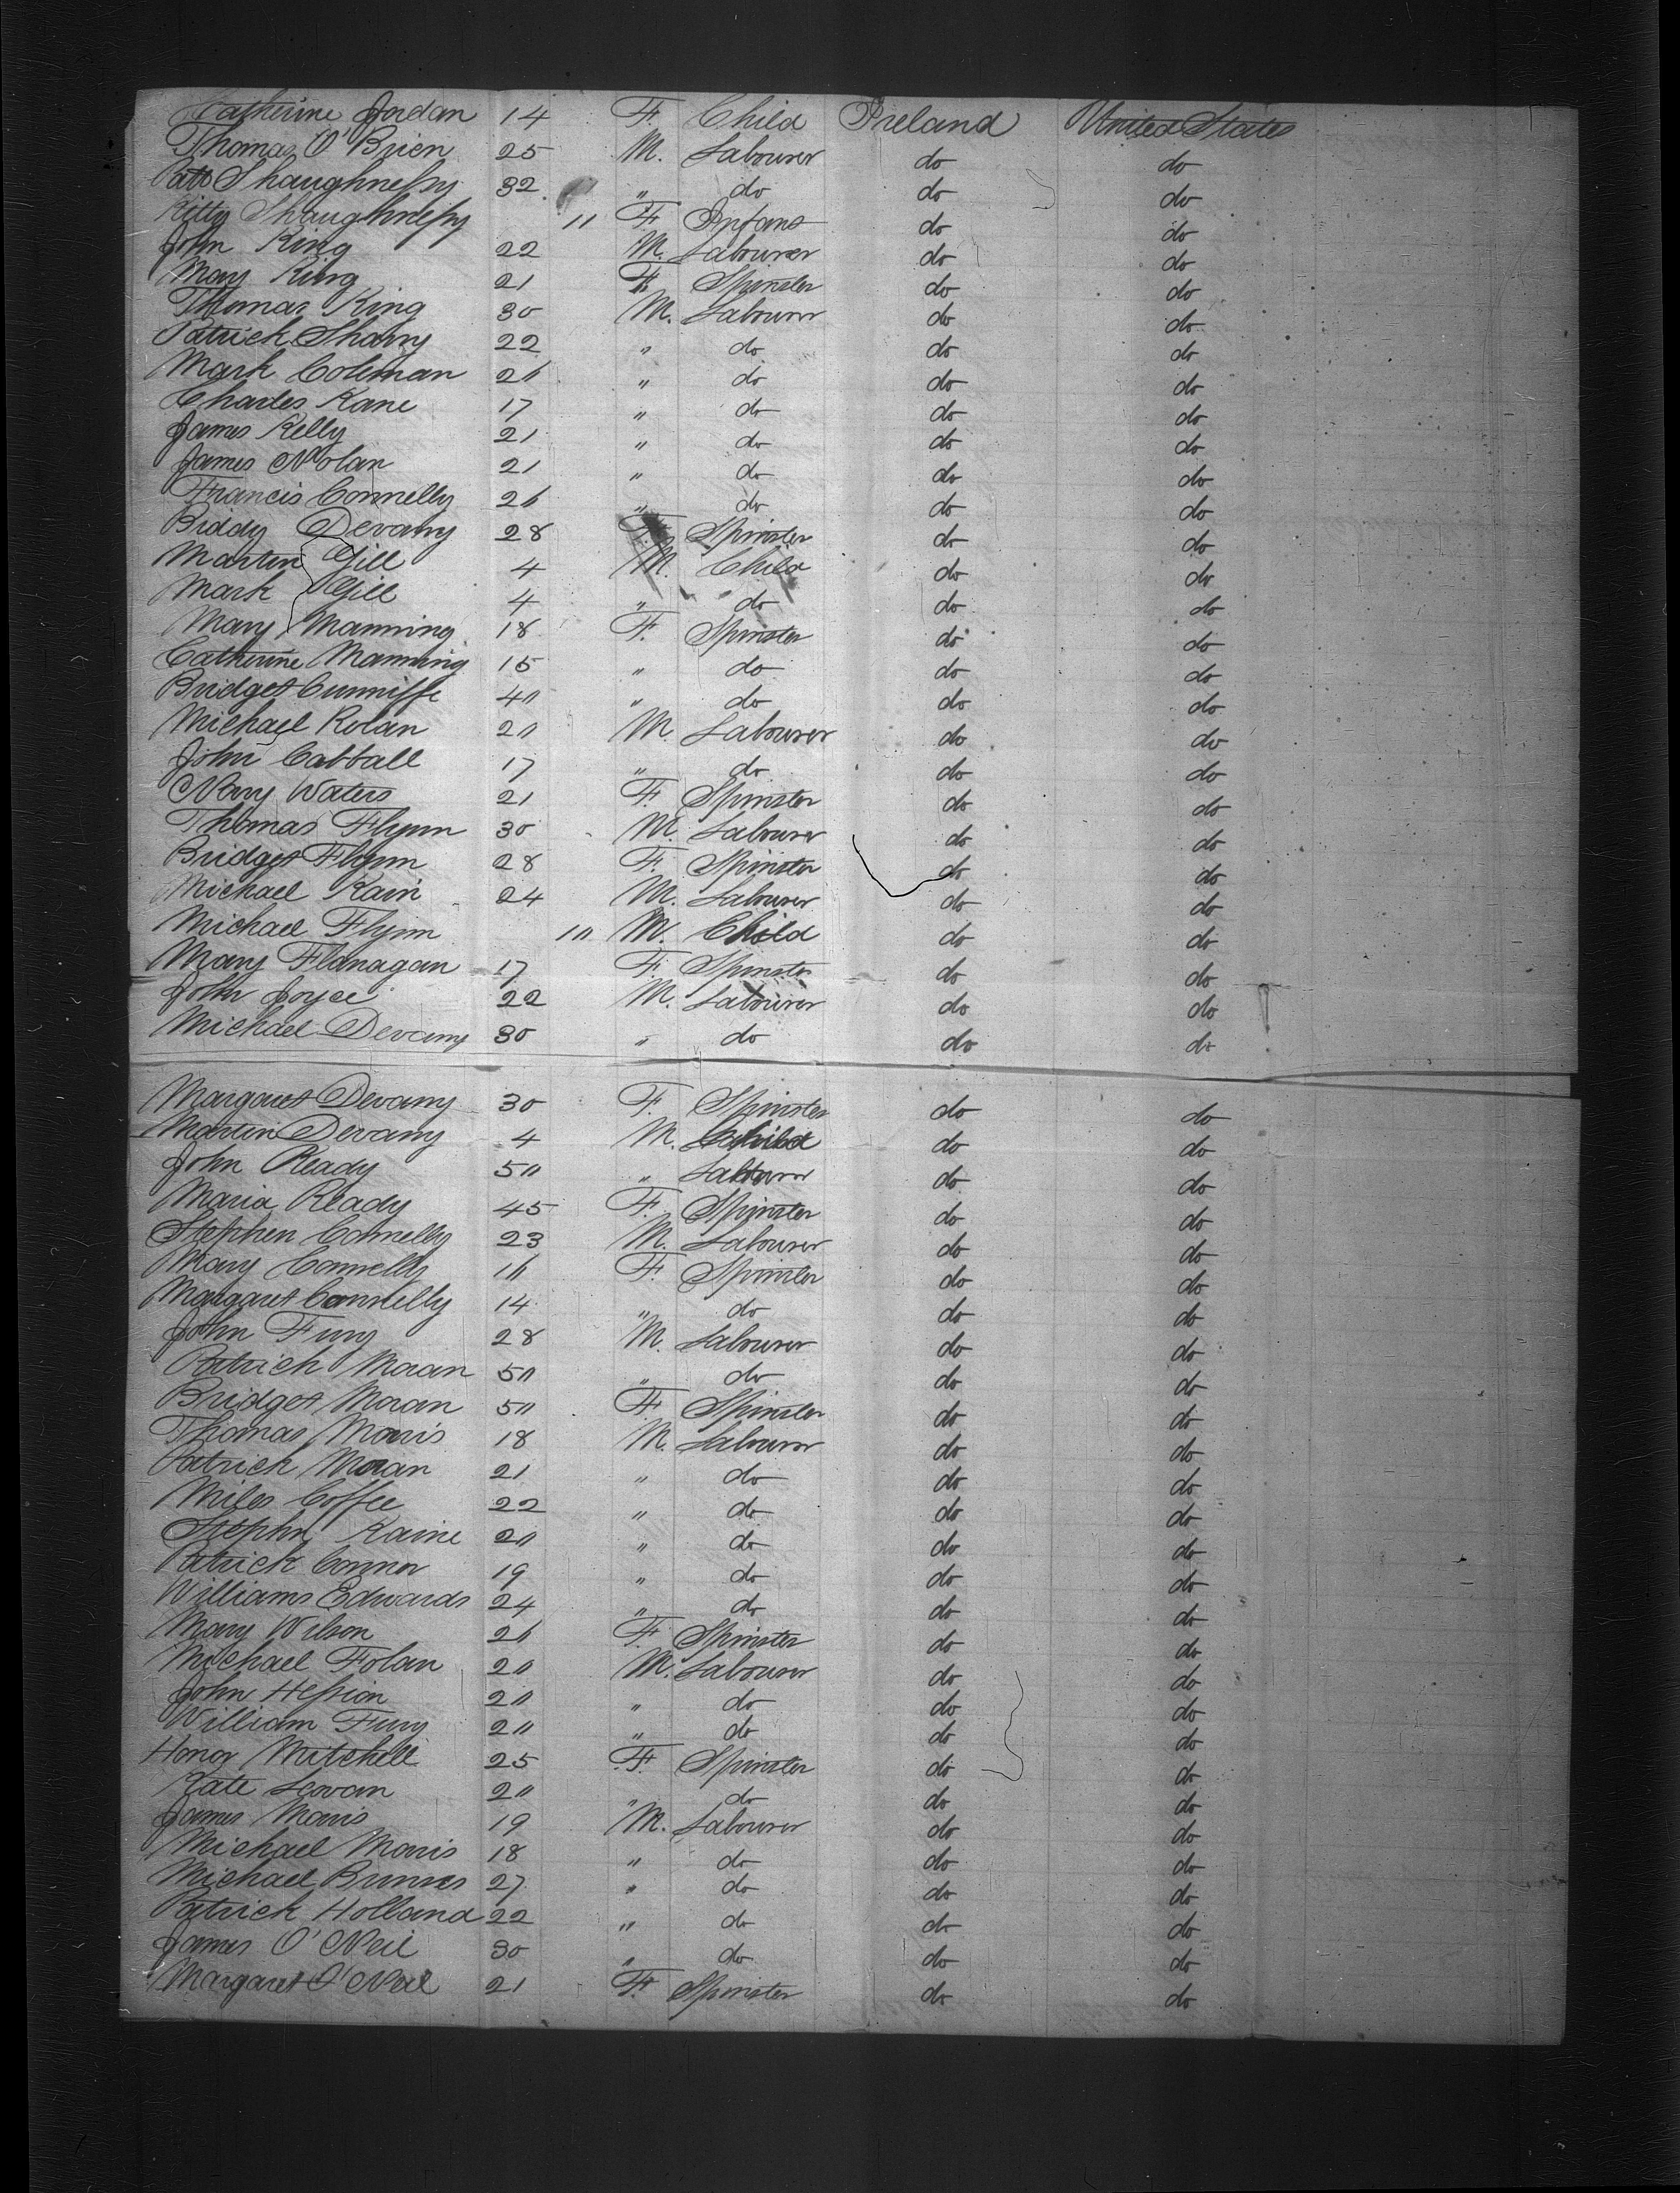 Catherine Jordan 14 F. Child Ireland United States
Thomas O'Brien 25 M. Labourer do do
Patt Shaughnessy 32 " do do do
Kitty Shaughnessy 11 F. Infant do do
John King 22 M. Labourer do do
Mary King 21 F. Spinster do do
Thomas King 30 M. Labourer do do
Patrick Sharry 22 " do do do
Mark Coleman 26 " do do do
Charles Kane 17 " do do do
James Kelly 21 " do do do
James Nolan 21 " do do do
Francis Connelly 26 " do do do
Biddy Devany 28 F. Spinster do do
Martin Gill 4 M. Child do do
Mark Gill 4 " do do do
Mary Manning 18 F. Spinster do do
Catherine Manning 15 " do do do
Bridget Cunniffe 40 " do do do
Michael Rolan 20 M. Labourer do do
John Cabball 17 " do do do
Mary Waters 21 F. Spinster do do
Thomas Flynn 30 M. Labourer do do
Bridget Flynn 28 F. Spinster do do
Michael Kain 24 M. Labourer do do
Michael Flynn 10 M. Child do do
Mary Flanagan 17 F. Spinster do do
John Joyce 22 M. Labourer do do
Michael Devany 30 " do do do
Margaret Devany 30 F. Spinster do do
Martin Devany 4 M. Child do do
John Ready 50 " Labourer do do
Maria Ready 45 F. Spinster do do
Stephen Connelly 23 M. Labourer do do
Mary Connelly 16 F. Spinster do do
Margaret Connelly 14 " do do do
John Fury 28 M. Labourer do do
Patrick Moran 50 " do do do
Bridget Moran 50 F. Spinster do do
Thomas Morris 18 M. Labourer do do
Patrick Moran 21 " do do do
Miles Coffee 22 " do do do
Stephn Kaine 20 " do do do
Patrick Connor 19 " do do do
Williams Edwards 24 " do do do
Mary Wilson 26 F. Spinster do do
Michael Folan 20 M. Labourer do do
John Hession 20 " do do do
William Fury 20 " do do do
Honor Mitchell 25 F. Spinster do do
Kate 20 " do do do
James Morris 19 M. Labourer do do
Michael Morris 18 " do do do
Michael 27 " do do do
Patrick Holland 22 " do do do
James O'Neil 30 " do do do
Margaret O'Neil 21 F. Spinster do do